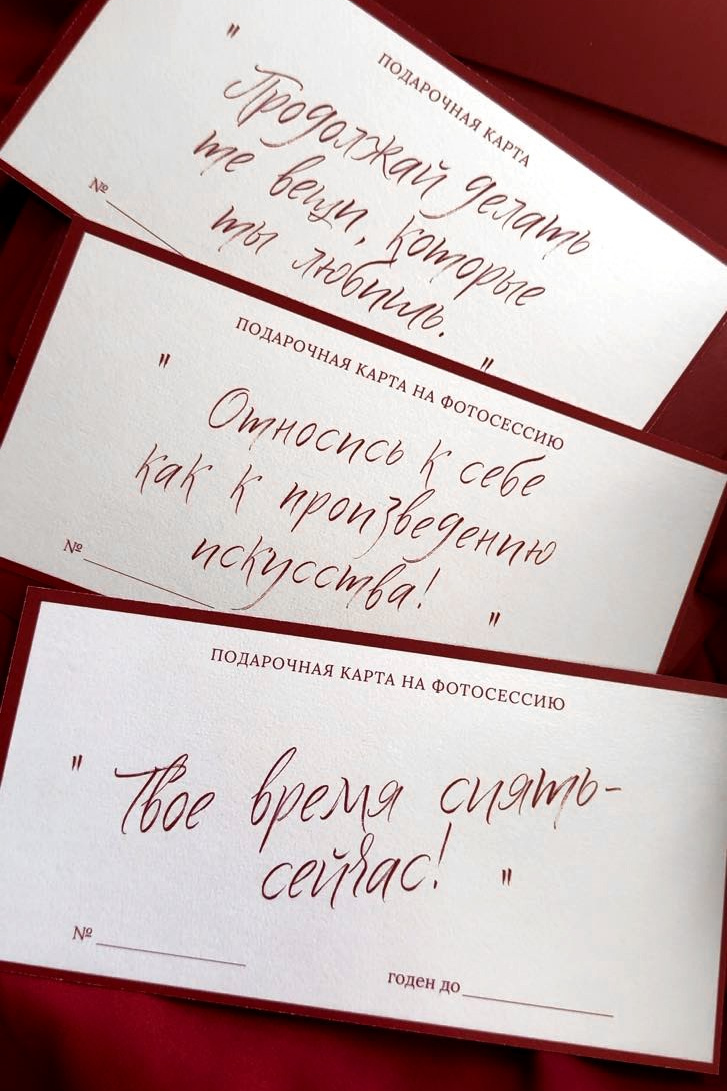 ПОДАРОЧНАЯ КАРТА
"Продолжай делать
те вещи, которые
ты любишь."
№
ПОДАРОЧНАЯ КАРТА НА ФОТОСЕССИЮ
"Относись к себе
как к произведению
искусства!"
№
ПОДАРОЧНАЯ КАРТА НА ФОТОСЕССИЮ
"Твое время сиять-
сейчас!"
№
годен до